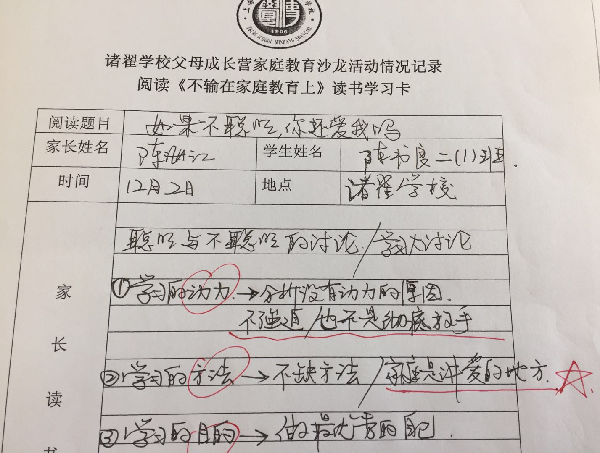 1906
诸翟学校父母成长营家庭教育沙龙活动情况记录
阅读《不输在家庭教育上》读书学习卡
阅读题目 如果不聪明,你还爱我吗
家长姓名 陈 江 学生姓名 陈 良二(1)班.
时间 12月2日 地点 诸翟学校
聪明与不聪明的讨论/学以讨论
家长读书
①学习的动力→分析没有动力的原因.
不强迫/也不是彻底放手
②学习的方法→不缺方法/家庭是讲爱的地方.
③学习的目的→做最优秀的自己.